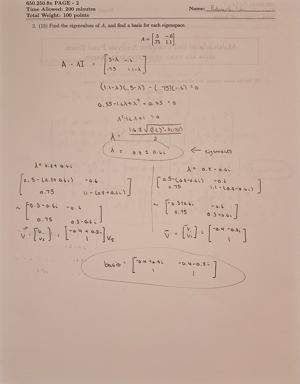 650.250.8x PAGE - 2
Time Allowed: 200 minutes
Total Weight: 100 points
Name:
3. (15) Find the eigenvalues of A, and find a basis for each eigenspace.
A = [.5 -.6; .75 1.1]
A - λI = [.5-λ -.6; .75 1.1-λ]
(1.1-λ)(.5-λ) - (.75)(-.6) = 0
0.55 - 1.6λ + λ² + 0.45 = 0
λ² - 1.6λ + 1 = 0
λ = 0.8 ± 0.6i ← eigenvalues
λ = 0.8 + 0.6i
[0.5-(0.8+0.6i) -0.6; 0.75 1.1-(0.8+0.6i)]
~ [-0.3-0.6i -0.6; 0.75 0.3-0.6i]
v = [v₁; v₂] = [-0.4+0.8i; 1] v₂
λ = 0.8 - 0.6i
[0.5-(0.8-0.6i) -0.6; 0.75 1.1-(0.8-0.6i)]
~ [-0.3+0.6i -0.6; 0.75 0.3+0.6i]
v = [v₁; v₂] = [-0.4-0.8i; 1]
basis = [-0.4+0.8i -0.4-0.8i; 1 1]